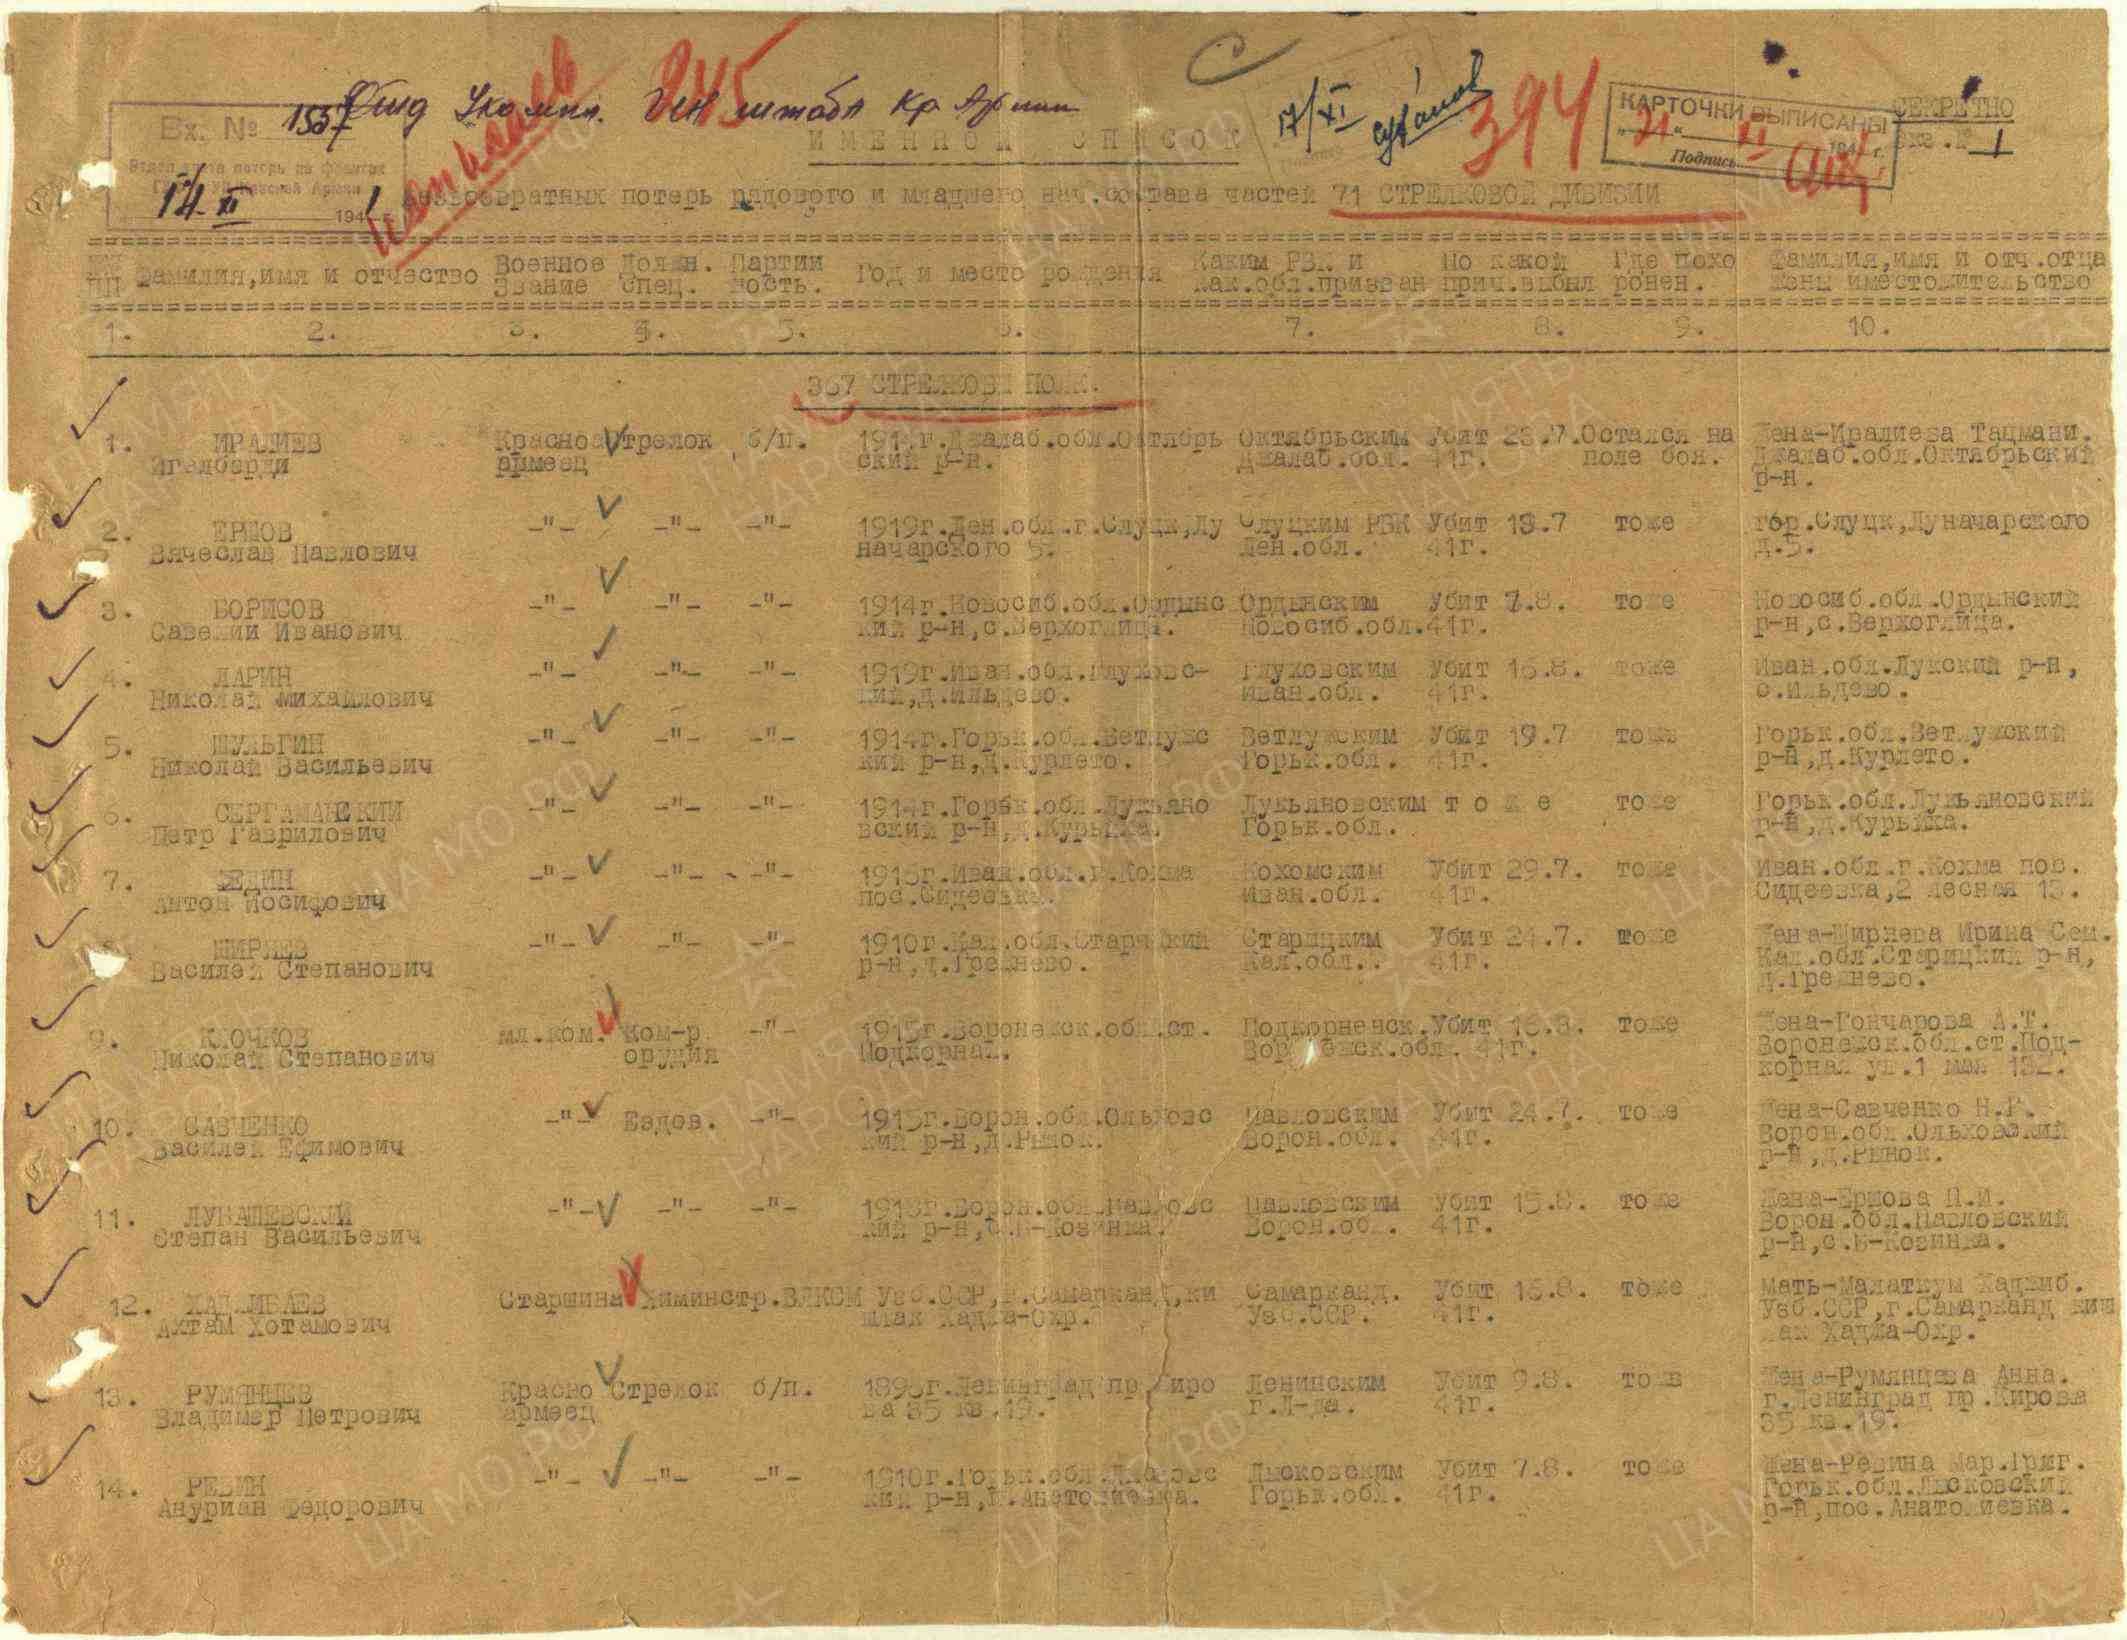 Вх. № 1557
Отдел учета потерь на фронтах
14 XI 1941 г.
Ген штаба Кр Армии
245
17/XI
394
КАРТОЧКИ ВЫПИСАНЫ
"21" 11 1941 г.
Подпись
СЕКРЕТНО
Экз. № 1
ИМЕННОЙ СПИСОК
безвозвратных потерь рядового и младшего нач.состава частей 71 СТРЕЛКОВОЙ ДИВИЗИИ
ПП Фамилия,имя и отчество Военное Должн. Партий Год и место рождения Каким РВК и По какой Где похо Фамилия,имя и отч.отца
Звание спец. ность. как.обл.призван прич.выбыл ронен. жены иместожительство
1. 2. 3. 4. 5. 6. 7. 8. 9. 10.
367 СТРЕЛКОВЫ ПОЛК.
1. ИРАЛИЕВ Красноа Стрелок б/п. 1914г.Джалаб.обл.Октябрь Октябрьским Убит 23.7. Остался на Жена-Иралиева Тацмани.
Игелберди рмеец ский р-н. Джалаб.обл. 41г. поле боя. Джалаб.обл.Октябрьский
р-н.
2. ЕРШОВ -"- -"- -"- 1919г.Лен.обл.г.Слуцк,Лу Слуцким РВК Убит 18.7 тоже гор.Слуцк,Луначарского
Вячеслав Павлович начарского 5. Лен.обл. 41г. д.5.
3. БОРИСОВ -"- -"- -"- 1914г.Новосиб.обл.Ордынс Ордынским Убит 7.8. тоже Новосиб.обл.Ордынский
Савелий Иванович кий р-н,с.Верхоглица. Новосиб.обл. 41г. р-н,с.Верхоглица.
4. ЛАРИН -"- -"- -"- 1919г.Иван.обл.Глуховс- Глуховским Убит 16.8. тоже Иван.обл.Лукский р-н,
Николай Михайлович кий,д.Ильдево. Иван.обл. 41г. с.Ильдево.
5. ШУЛЬГИН -"- -"- -"- 1914г.Горьк.обл.Ветлужс Ветлужским Убит 19.7 тоже Горьк.обл.Ветлужский
Николай Васильевич кий р-н,д.Курлето. Горьк.обл. 41г. р-н,д.Курлето.
6. СЕРГАМАНСКИЙ -"- -"- -"- 1914г.Горьк.обл.Лукьяно Лукьяновским т о ж е тоже Горьк.обл.Лукьяновский
Петр Гаврилович вский р-н,д.Курыжа. Горьк.обл. р-н,д.Курыжа.
7. ФЕДИН -"- -"- -"- 1915г.Иван.обл.г.Кохма Кохомским Убит 29.7. тоже Иван.обл.г.Кохма пос.
Антон Иосифович пос.Сидеевка. Иван.обл. 41г. Сидеевка,2 лесная 13.
ШИРЯЕВ -"- -"- -"- 1910г.Кал.обл.Старицкий Старицким Убит 24.7. тоже Жена-Ширяева Ирина Сем.
Василей Степанович р-н,д.Греднево. Кал.обл. 41г. Кал.обл.Старицкий р-н,
д.Греднево.
9. КЛОЧКОВ мл.ком. Ком-р -"- 1915г.Воронежск.обл.ст. Подкорненск. Убит 16.8. тоже Жена-Гончарова А.Т.
Николай Степанович орудия Подкорная. Воронежск.обл. 41г. Воронежск.обл.ст.Под-
корная ул.1 мая 132.
10. САВЧЕНКО -"- Ездов. -"- 1915г.Ворон.обл.Ольховс Павловским Убит 24.7. тоже Жена-Савченко Н.Р.
Василей Ефимович кий р-н,д.Рынок. Ворон.обл. 41г. Ворон.обл.Ольховский
р-н,д.Рынок.
11. ЛУБАШЕВСКИЙ -"- -"- -"- 1913г.Ворон.обл.Павловс Павловским Убит 15.8. тоже Жена-Ершова П.И.
Степан Васильевич кий р-н,с.В-Козинка. Ворон.об. 41г. Ворон.обл.Павловский
р-н,с.В-Козинка.
12. ХАДЖИБАЕВ Старшина Химинстр. ВЛКСМ Узб.ССР,г.Самарканд,ки Самарканд. Убит 16.8. тоже Мать-Малаткум Хаджиб.
Ахтам Хотамович шлак Хаджа-Охр. Узб.ССР. 41г. Узб.ССР,г.Самарканд киш
лак Хаджа-Охр.
13. РУМЯНЦЕВ Красно Стрелок б/п. 1895г.Ленинград пр.Киро Ленинским Убит 9.8. тоже Жена-Румянцева Анна.
Владимер Петрович армеец ва 35 кв.19. г.Л-да. 41г. г.Ленинград пр.Кирова
35 кв.19.
14. РЕВИН -"- -"- -"- 1910г.Горьк.обл.Лысковс Лысковским Убит 7.8. тоже Жена-Ревина Мар.Григ.
Ануриан Федорович кий р-н,п.Анатолиевка. Горьк.обл. 41г. Горьк.обл.Лысковский
р-н,пос.Анатолиевка.
ПАМЯТЬ НАРОДА
ЦА МО РФ